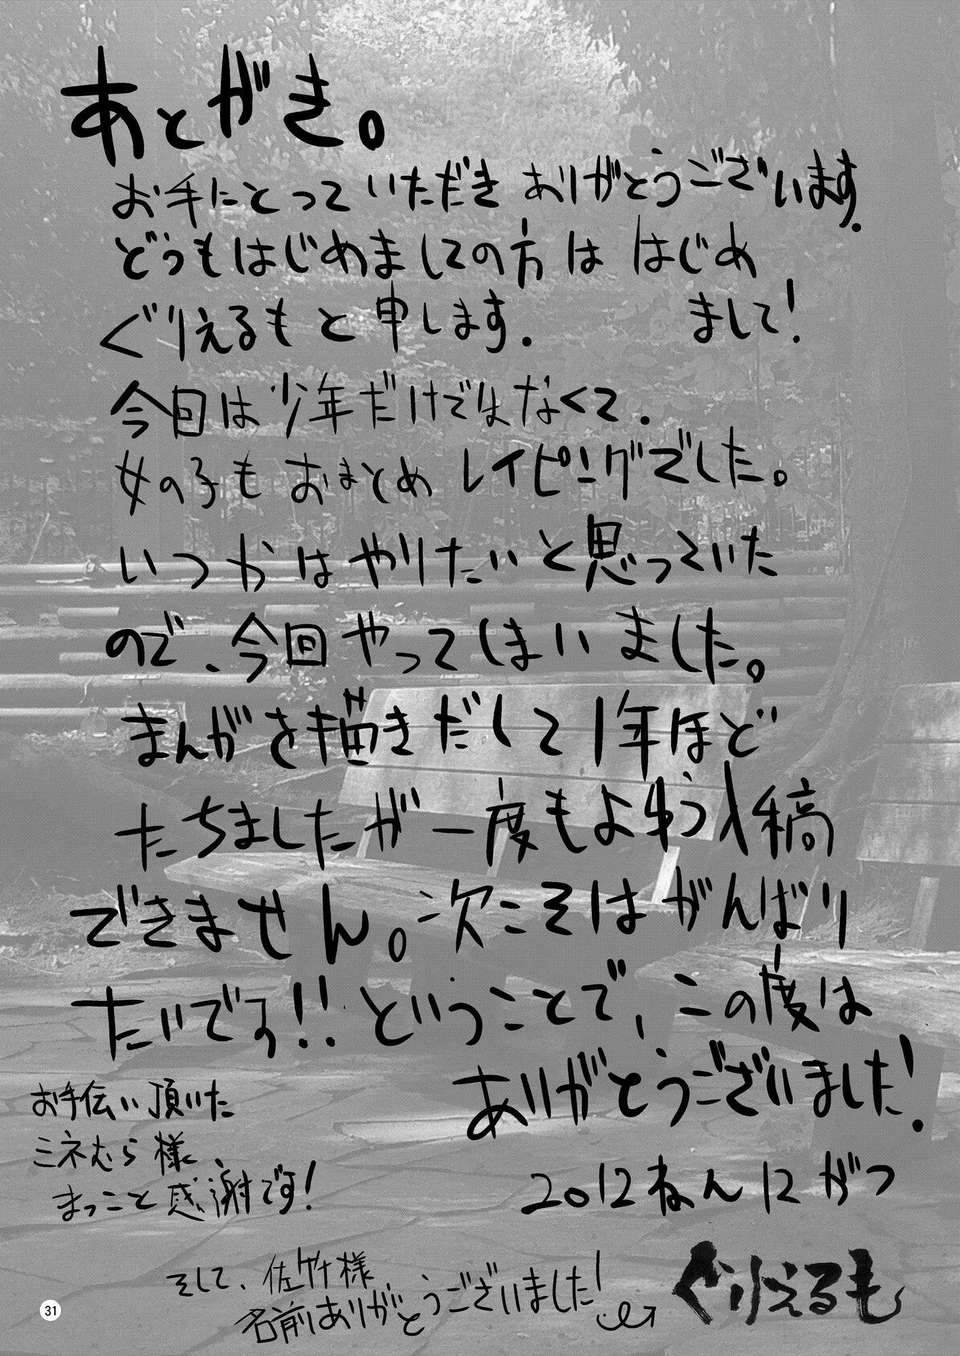 あとがき。
お手にとっていただき ありがとうございます.
どうもはじめましての方は はじめ
まして!
ぐりえるもと申します.
今回は少年だけではなくて.
女の子もおまとめレイピングでした。
いつかはやりたいと思っていた
ので、今回やってしまいました。
まんがを描きだして1年ほど
たちましたが一度もよゆう入稿
できません。次こそはがんばり
たいです!!ということで、この度は
ありがとうございました!
お手伝い頂いた
ミネむら様、
まっこと感謝です!
2012ねん12がつ
そして、佐竹様
名前ありがとうございました!
ぐりえるも
31